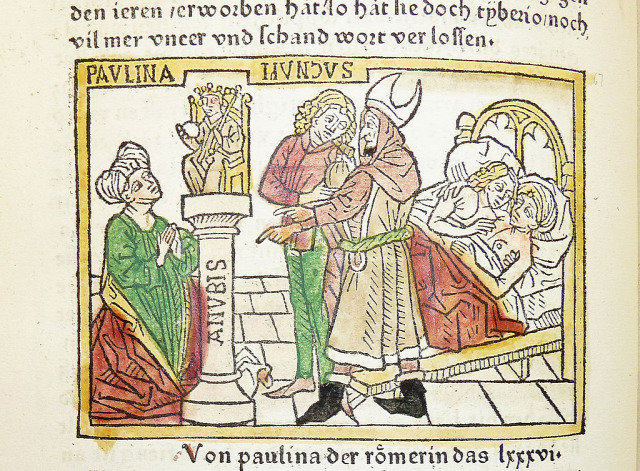 den ieren /erworben hat. so hat sie doch tyberio, noch
vil mer vneer vnd schand wort ver lossen.
PAVLINA
MVNDVS
ANVBIS
Von paulina der rőmerin das lxxxvi.